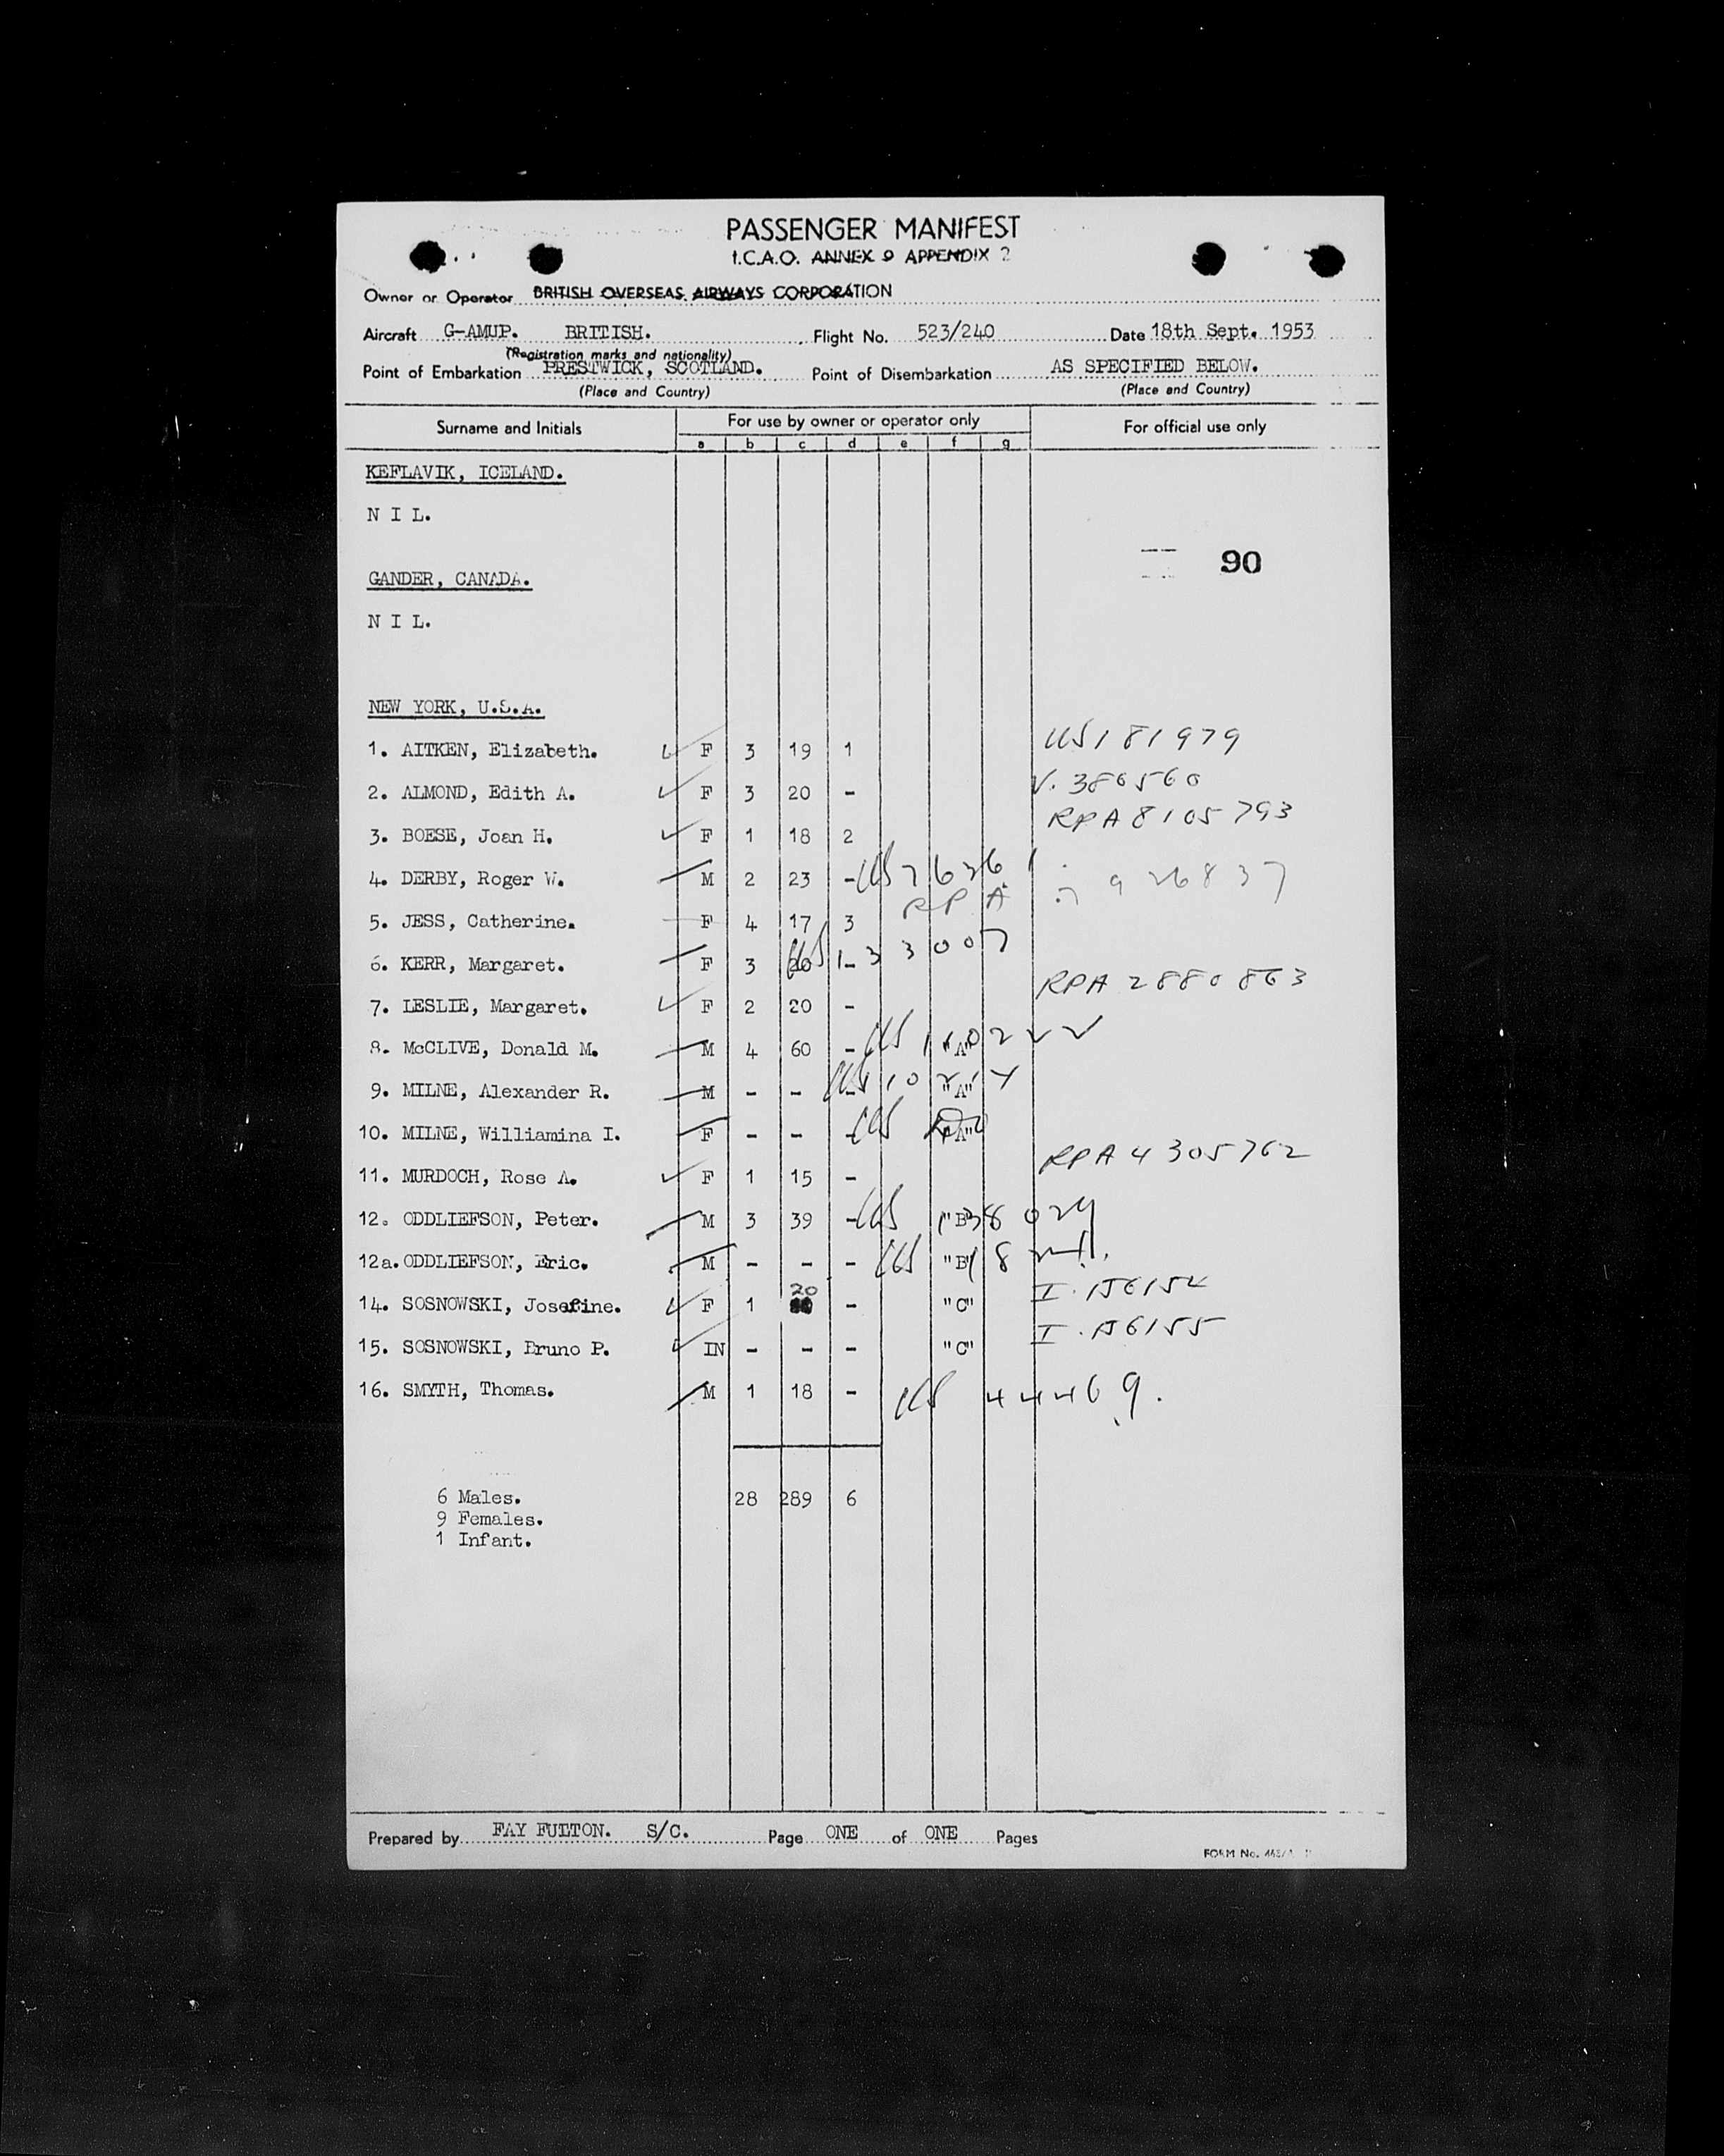 PASSENGER MANIFEST
I.C.A.O. ANNEX 9 APPENDIX 2
Owner or Operator BRITISH OVERSEAS AIRWAYS CORPORATION
Aircraft G-AMUP. BRITISH. Flight No. 523/240 Date 18th Sept. 1953
(Registration marks and nationality)
Point of Embarkation PRESTWICK, SCOTLAND. Point of Disembarkation AS SPECIFIED BELOW.
(Place and Country) (Place and Country)
Surname and Initials For use by owner or operator only For official use only
a b c d e f g
KEFLAVIK, ICELAND.
N I L.
90
GANDER, CANADA.
N I L.
NEW YORK, U.S.A.
1. AITKEN, Elizabeth. F 3 19 1 US181979
2. ALMOND, Edith A. F 3 20 - V. 386560
3. BOESE, Joan H. F 1 18 2 RPA 8105793
4. DERBY, Roger W. M 2 23 - US
5. JESS, Catherine. F 4 17 3 RPA
6. KERR, Margaret. F 3 20 - US 133007
7. LESLIE, Margaret. F 2 20 - RPA 2880863
8. McCLIVE, Donald M. M 4 60 - US "A"
9. MILNE, Alexander R. M - - - US "A"
10. MILNE, Williamina I. F - - - US "A"
11. MURDOCH, Rose A. F 1 15 - RPA 4305762
12. ODDLIEFSON, Peter. M 3 39 - US "B"
12a. ODDLIEFSON, Eric. M - - - US "B"
14. SOSNOWSKI, Josefine. F 1 20 - "C"
15. SOSNOWSKI, Bruno P. IN - - - "C"
16. SMYTH, Thomas. M 1 18 - US 44469.
6 Males. 28 289 6
9 Females.
1 Infant.
Prepared by FAY FULTON. S/C. Page ONE of ONE Pages
FORM No.